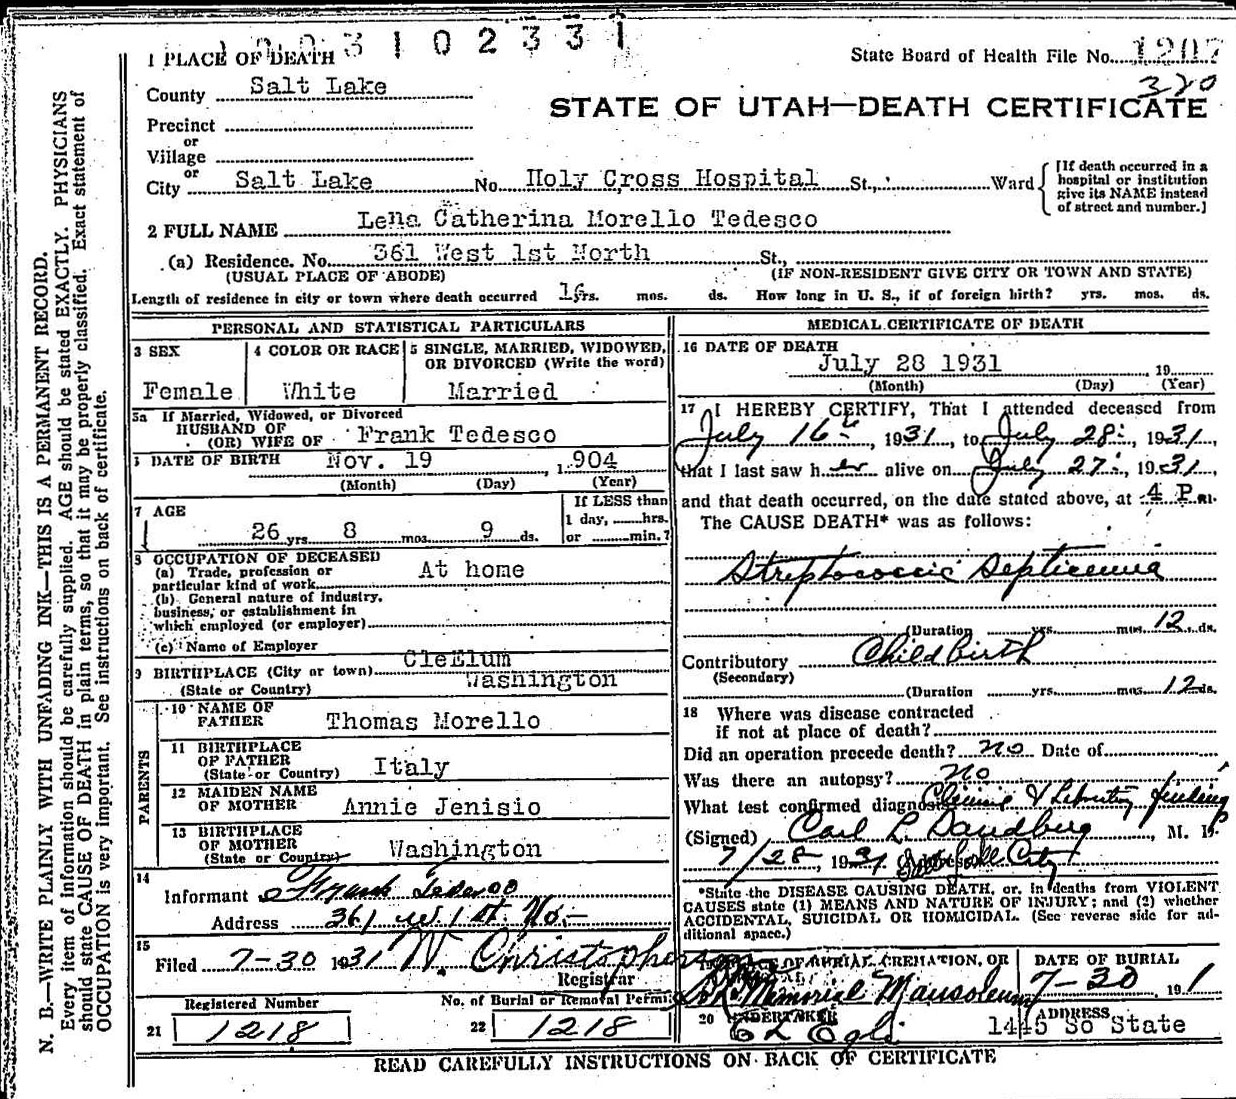 1003102331
1 PLACE OF DEATH
State Board of Health File No. 1207
320
County Salt Lake
STATE OF UTAH—DEATH CERTIFICATE
Precinct
or
Village
or
City Salt Lake No. Holy Cross Hospital St., Ward
[If death occurred in a
hospital or institution
give its NAME instead
of street and number.]
2 FULL NAME Lena Catherina Morello Tedesco
(a) Residence. No. 361 West 1st North St.,
(USUAL PLACE OF ABODE) (IF NON-RESIDENT GIVE CITY OR TOWN AND STATE)
Length of residence in city or town where death occurred yrs. mos. ds. How long in U. S., if of foreign birth? yrs. mos. ds.
PERSONAL AND STATISTICAL PARTICULARS
3 SEX
Female
4 COLOR OR RACE
White
5 SINGLE, MARRIED, WIDOWED,
OR DIVORCED (Write the word)
Married
5a If Married, Widowed, or Divorced
HUSBAND OF
(OR) WIFE OF Frank Tedesco
DATE OF BIRTH Nov. 19 1904
(Month) (Day) (Year)
7 AGE
26 yrs 8 mos. 9 ds.
If LESS than
1 day, hrs.
or min.?
8 OCCUPATION OF DECEASED
(a) Trade, profession or
particular kind of work At home
(b) General nature of Industry,
business, or establishment in
which employed (or employer)
(c) Name of Employer
9 BIRTHPLACE (City or town) CleElum
(State or Country) Washington
PARENTS
10 NAME OF
FATHER Thomas Morello
11 BIRTHPLACE
OF FATHER
(State or Country) Italy
12 MAIDEN NAME
OF MOTHER Annie Jenisio
13 BIRTHPLACE
OF MOTHER
(State or Country) Washington
14
Informant Frank Tedesco
Address 361 W 1st No.
15
Filed 7-30 1931 W. Christopherson
Registrar
Registered Number
21 1218
No. of Burial or Removal Permit
22 1218
MEDICAL CERTIFICATE OF DEATH
16 DATE OF DEATH
July 28 1931, 19
(Month) (Day) (Year)
17 I HEREBY CERTIFY, That I attended deceased from
July 16th, 1931, to July 28, 1931,
that I last saw her alive on July 27, 1931
and that death occurred, on the date stated above, at 4 P m.
The CAUSE DEATH* was as follows:
Streptococcic Septicemia
(Duration yrs. mos. 12 ds.
Contributory Childbirth
(Secondary)
(Duration yrs. mos. 12 ds.
18 Where was disease contracted
if not at place of death?
Did an operation precede death? no Date of
Was there an autopsy? No
What test confirmed diagnosis Clinical & Laboratory findings
(Signed) Carl L Sandberg, M. D.
7/28, 1931 Salt Lake City
*State the DISEASE CAUSING DEATH, or, in deaths from VIOLENT
CAUSES state (1) MEANS AND NATURE OF INJURY; and (2) whether
ACCIDENTAL, SUICIDAL OR HOMICIDAL. (See reverse side for ad-
ditional space.)
OF BURIAL, CREMATION, OR
Memorial Mausoleum
DATE OF BURIAL
7-30, 191
20 UNDERTAKER
ADDRESS
1445 So State
READ CAREFULLY INSTRUCTIONS ON BACK OF CERTIFICATE
N. B.—WRITE PLAINLY WITH UNFADING INK—THIS IS A PERMANENT RECORD.
Every item of information should be carefully supplied. AGE should be stated EXACTLY. PHYSICIANS
should state CAUSE OF DEATH in plain terms, so that it may be properly classified. Exact statement of
OCCUPATION is very important. See instructions on back of certificate.